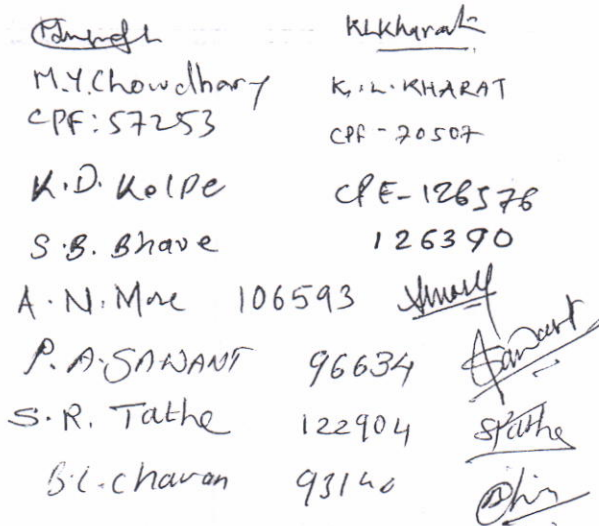 KLKharat
M.Y. Chowdhary K. L. KHARAT
CPF: 57253 CPF - 70507
K.D. Kolpe CPF - 126576
S.B. Bhave 126390
A.N. More 106593
P.A. SAWANT 96634 Sawant
S.R. Tathe 122904 SRTathe
B.L. Chavan 93140